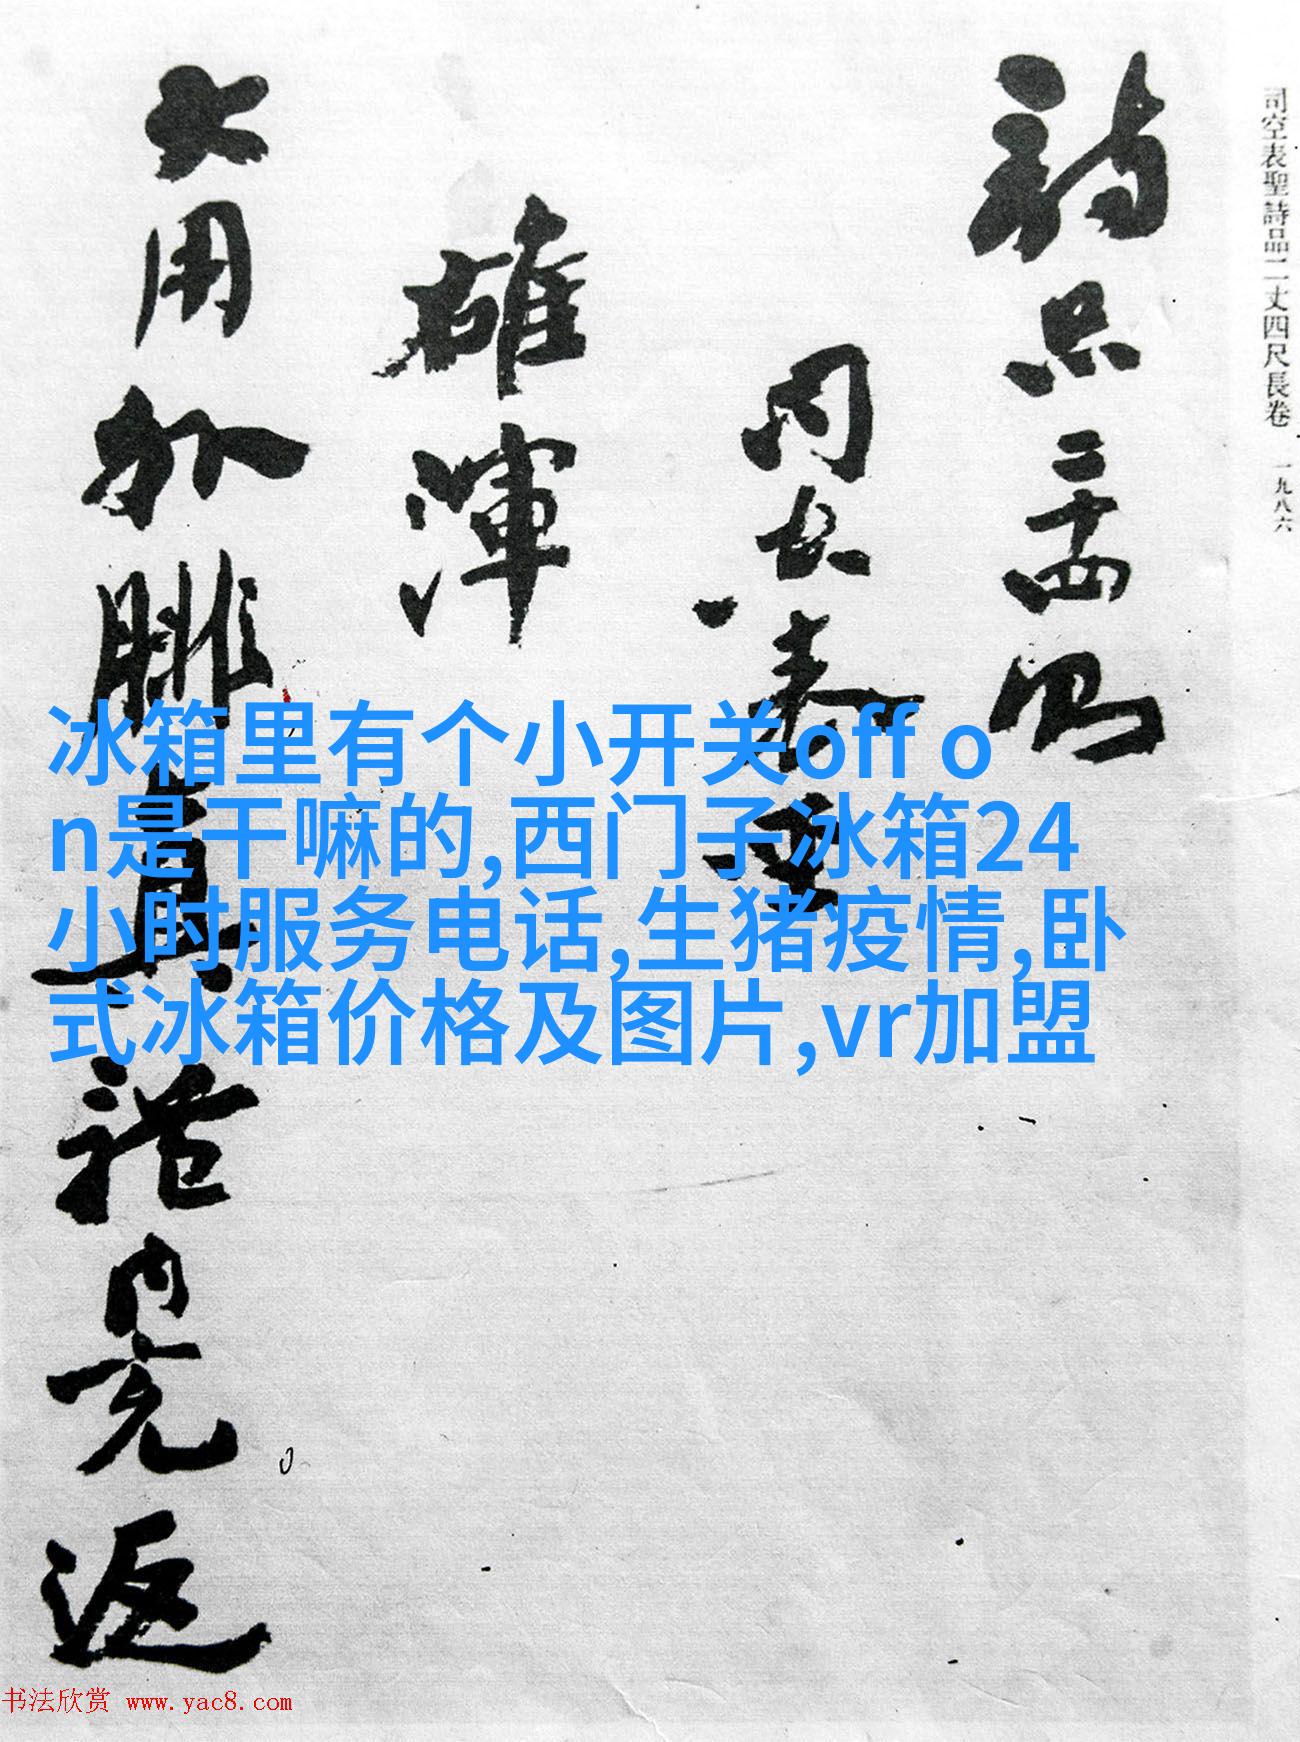 司空表聖詩品二丈四尺長卷 一九八六
詩品二十四則
司空表聖
雄渾
大用外腓真體内充返
冰箱里有个小开关off o
n是干嘛的,西门子冰箱24
小时服务电话,生猪疫情,卧
式冰箱价格及图片,vr加盟
书法欣赏 www.yac8.com